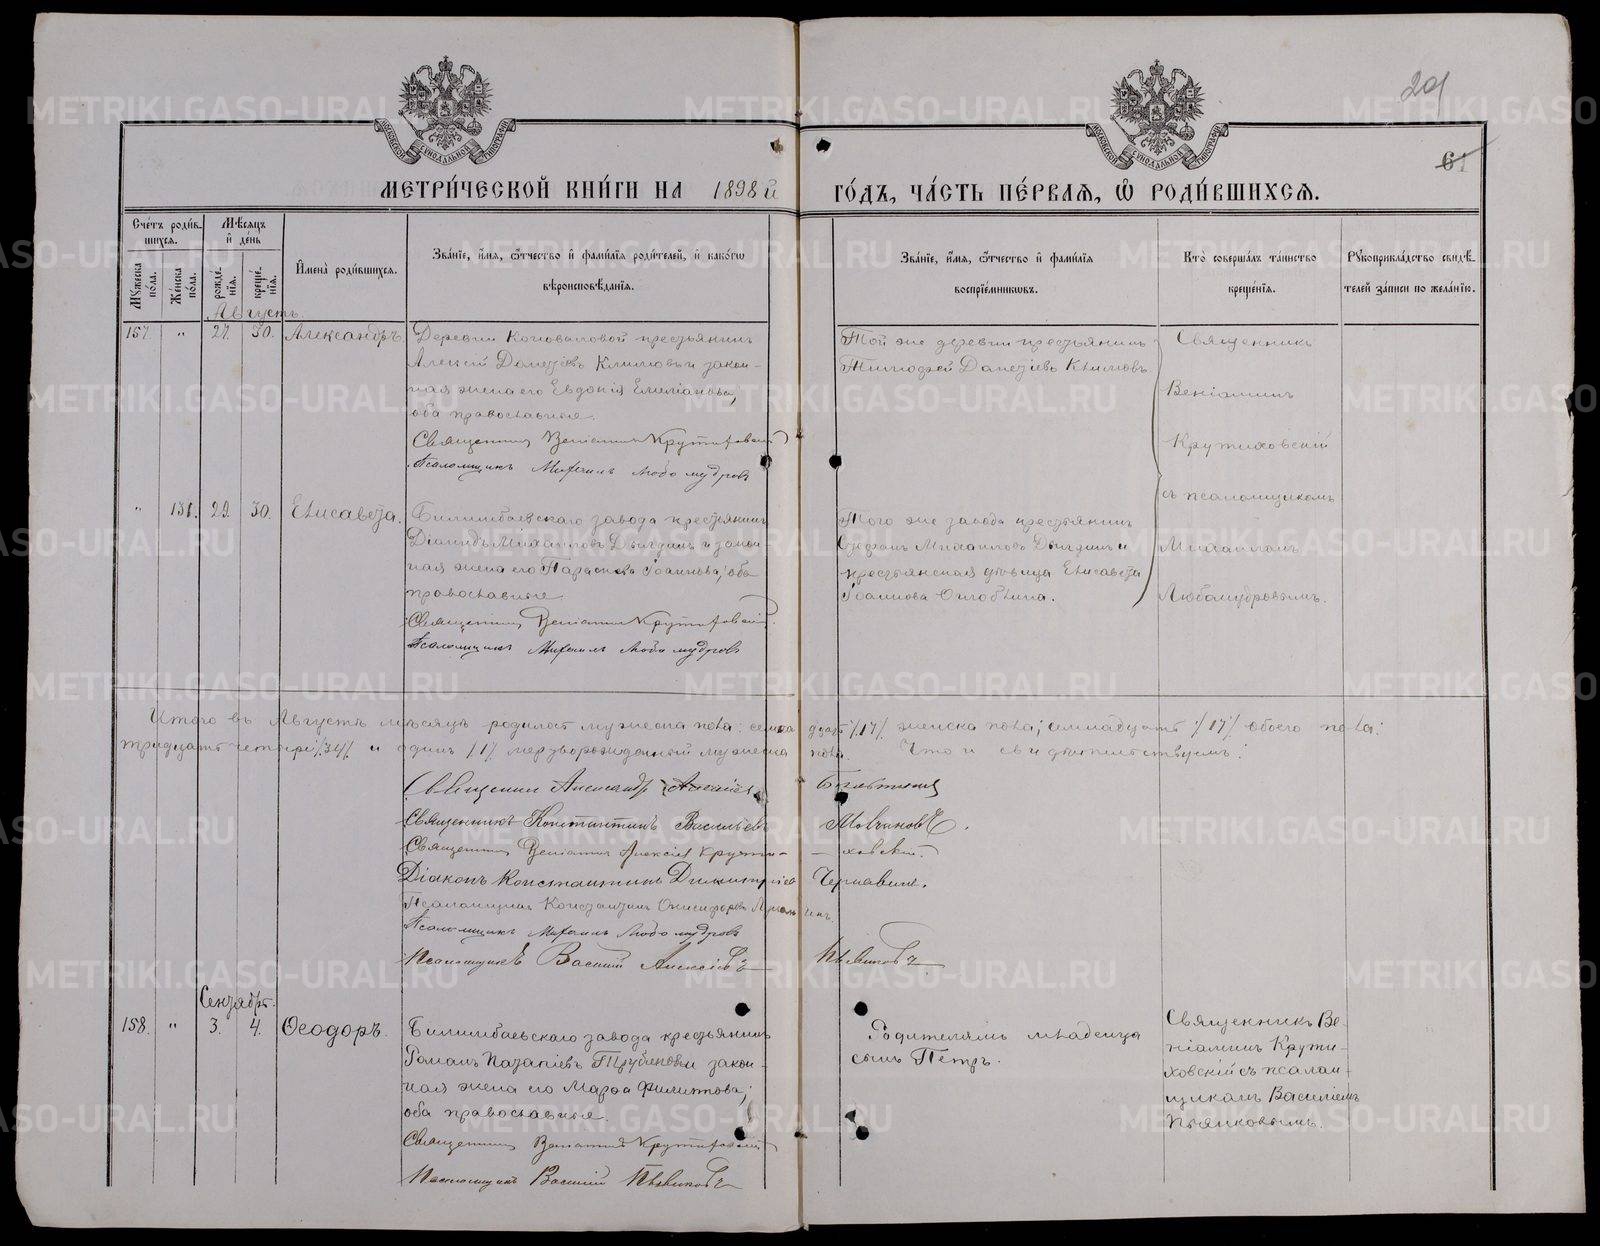 29
61
МОСКОВСКОЙ СѴНОДАЛЬНОЙ ТИПОГРАФІИ
МОСКОВСКОЙ СѴНОДАЛЬНОЙ ТИПОГРАФІИ
МЕТРИ́ЧЕСКОЙ КНИ́ГИ НА 1898й ГО́ДЪ, ЧА́СТЬ ПЕ́РВАѦ, Ѽ РОДИ́ВШИХСѦ.
Сче́тъ роди́в-
шихсѧ.
Мѣ́сѧцъ
и҆ де́нь
Мꙋ́жеска
по́ла.
Же́нска
по́ла.
рожде́-
нїѧ.
креще́-
нїѧ.
И҆мена̀ роди́вшихсѧ.
Зва́нїе, и҆́мѧ, ѻ҆́тчество и҆ фами́лїѧ роди́телей, и҆ како́гѡ
вѣроисповѣ́данїѧ.
Зва́нїе, и҆́мѧ, ѻ҆́тчество и҆ фами́лїѧ
воспрїе́мникѡвъ.
Кто̀ соверша́лъ та́инство
креще́нїѧ.
Рꙋкоприкла́дство свидѣ́-
телей за́писи по жела́нїю.
Августъ.
157. " 27. 30. Александръ.
Деревни Коноваловой крестьянинъ
Алексій Климовъ и закон-
ная жена его Евдокія Емеліанова,
оба православные.
Священникъ Веніаминъ Крутиховскій
Псаломщикъ Михаилъ Любомудровъ
Той же деревни крестьянинъ
Тимофей Климовъ.
Священникъ
Веніаминъ
Крутиховскій
съ псаломщикомъ
Михаиломъ
Любомудровымъ.
" 131. 29. 30. Елисавета.
Билимбаевскаго завода крестьянинъ
Михаиловъ Дылдинъ и закон-
ная жена его Параскева Іоаннова, оба
православные.
Священникъ Веніаминъ Крутиховскій.
Псаломщикъ Михаилъ Любомудровъ
Того же завода крестьянинъ
Михаиловъ Дылдинъ и
крестьянская дѣвица Елисавета
Іоаннова
Итого въ Августѣ мѣсяцѣ родилось мужеска пола: семнадцать /17/ женска пола; семнадцать /17/ обоего пола:
тридцать четыре /34/ и одинъ /1/ мертворожденный мужеска пола. Что и свидѣтельствуемъ:
Священникъ Александръ Алексіевъ
Священникъ Константинъ Васильевъ Словцовъ.
Священникъ Веніаминъ Алексіевъ Крути-ховскій.
Діаконъ Константинъ Димитріевъ Чернавинъ.
Псаломщикъ Константинъ Онисифоровъ
Псаломщикъ Михаилъ Любомудровъ
Псаломщикъ Василій Алексіевъ Пьянковъ
Сентябрь.
158. " 3. 4. Ѳеодоръ.
Билимбаевскаго завода крестьянинъ
Романъ Назаріевъ и закон-
ная жена его Марѳа Филиппова;
оба православные.
Священникъ Веніаминъ Крутиховскій
Псаломщикъ Василій Пьянковъ
Родителямъ младенца
сынъ Петръ.
Священникъ Ве-
ніаминъ Крути-
ховскій съ псалом-
щикомъ Василіемъ
Пьянковымъ.